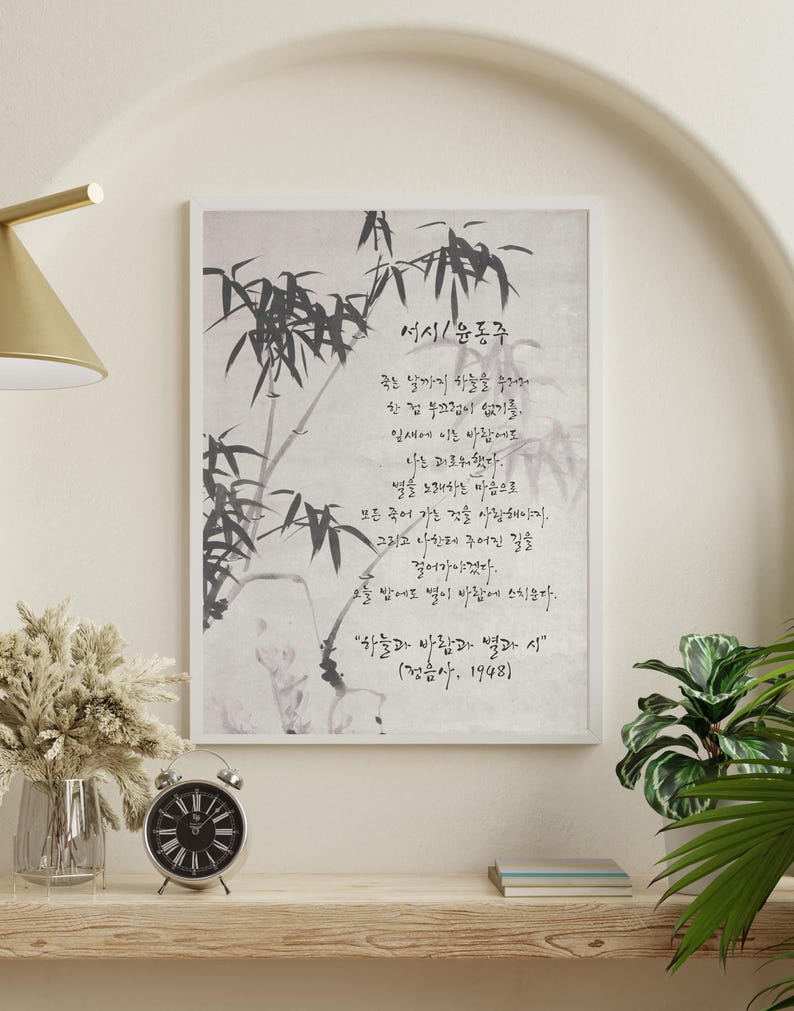 서시/윤동주
죽는 날까지 하늘을 우러러
한 점 부끄럼이 없기를,
잎새에 이는 바람에도
나는 괴로워했다.
별을 노래하는 마음으로
모든 죽어 가는 것을 사랑해야지.
그리고 나한테 주어진 길을
걸어가야겠다.
오늘 밤에도 별이 바람에 스치운다.
"하늘과 바람과 별과 시"
(정음사, 1948)